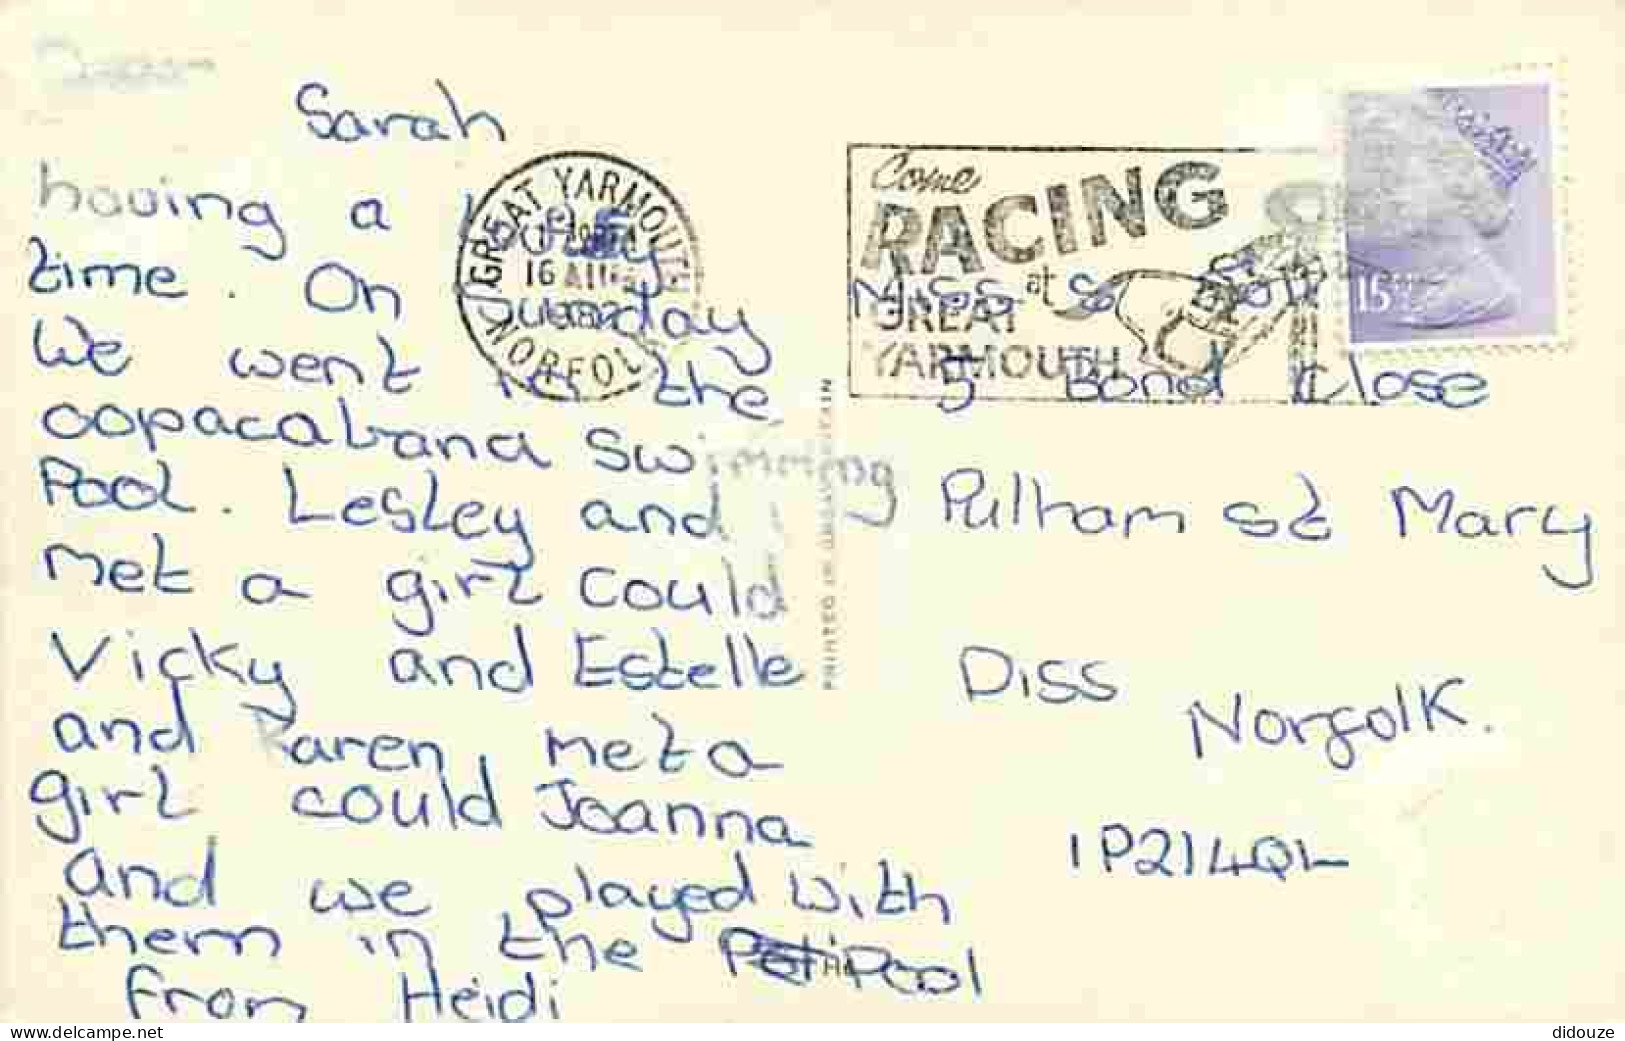 Dear
Sarah
having a
time. On Sunday
We went to the
copacabana swimming
Pool. Lesley and I
met a girl could
Vicky and Estelle
and Karen met a
girl could Joanna
and we played with
them in the Pool
From Heidi
GREAT YARMOUTH
16 AUG
1982
NORFOLK
Come
RACING
at
GREAT
YARMOUTH
15
PRINTED IN GREAT BRITAIN
Miss S.
5 Bond Close
Pulham St Mary
Diss
Norfolk.
IP21 4QL
delcampe.net
didouze